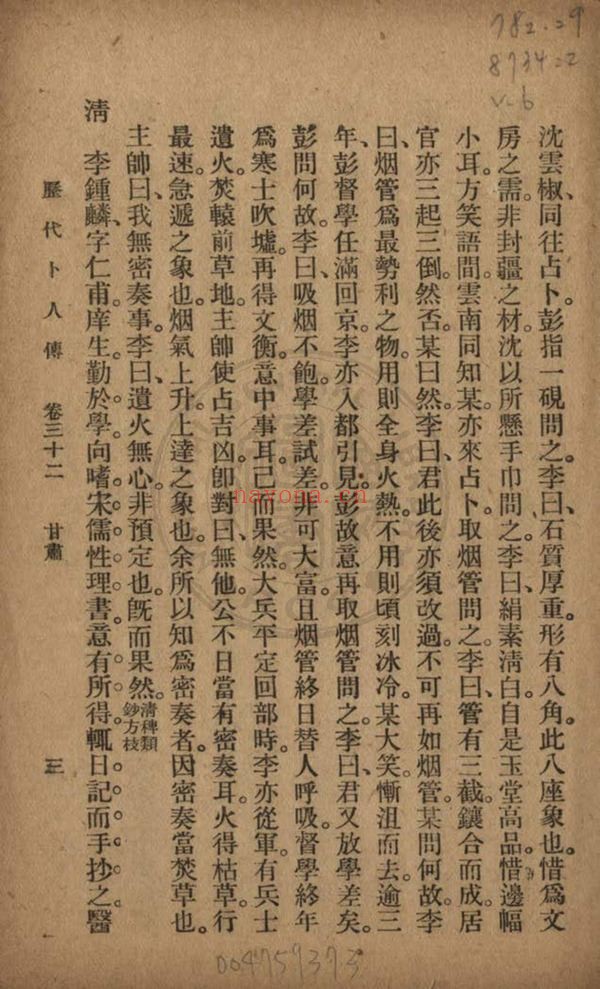 782.29
8734-2
v.6
沈雲椒、同往占卜。彭指一硯問之。李曰、石質厚重。形有八角。此八座象也。惜爲文
房之需。非封疆之材。沈以所懸手巾問之。李曰、絹素淸白。自是玉堂高品。惜邊幅
小耳。方笑語間。雲南同知某。亦來占卜。取烟管問之。李曰、管有三截。鑲合而成。居
官亦三起三倒。然否。某曰然。李曰、君此後亦須改過。不可再如烟管。某問何故。李
曰、烟管爲最勢利之物。用則全身火熱。不用則頃刻冰冷。某大笑。慚沮而去。逾三
年、彭督學任滿回京。李亦入都引見。彭故意再取烟管問之。李曰、君又放學差矣。
彭問何故。李曰、吸烟不飽。學差試差。非可大富。且烟管終日替人呼吸。督學終年
爲寒士吹墟。再得文衡。意中事耳。已而果然。大兵平定回部時。李亦從軍。有兵士
遺火。焚轅前草地。主帥使占吉凶。卽對曰、無他。公不日當有密奏耳。火得枯草。行
最速。急遞之象也。烟氣上升。上達之象也。余所以知爲密奏者。因密奏當焚草也。
主帥曰、我無密奏事。李曰、遺火無心。非預定也。旣而果然。淸稗類鈔方技
淸 李鍾麟、字仁甫。庠生。勤於學。向嗜宋儒性理書。意有所得。輒日記而手抄之。醫
歷代卜人傳 卷三十二 甘肅 三
00475937
navona.cn